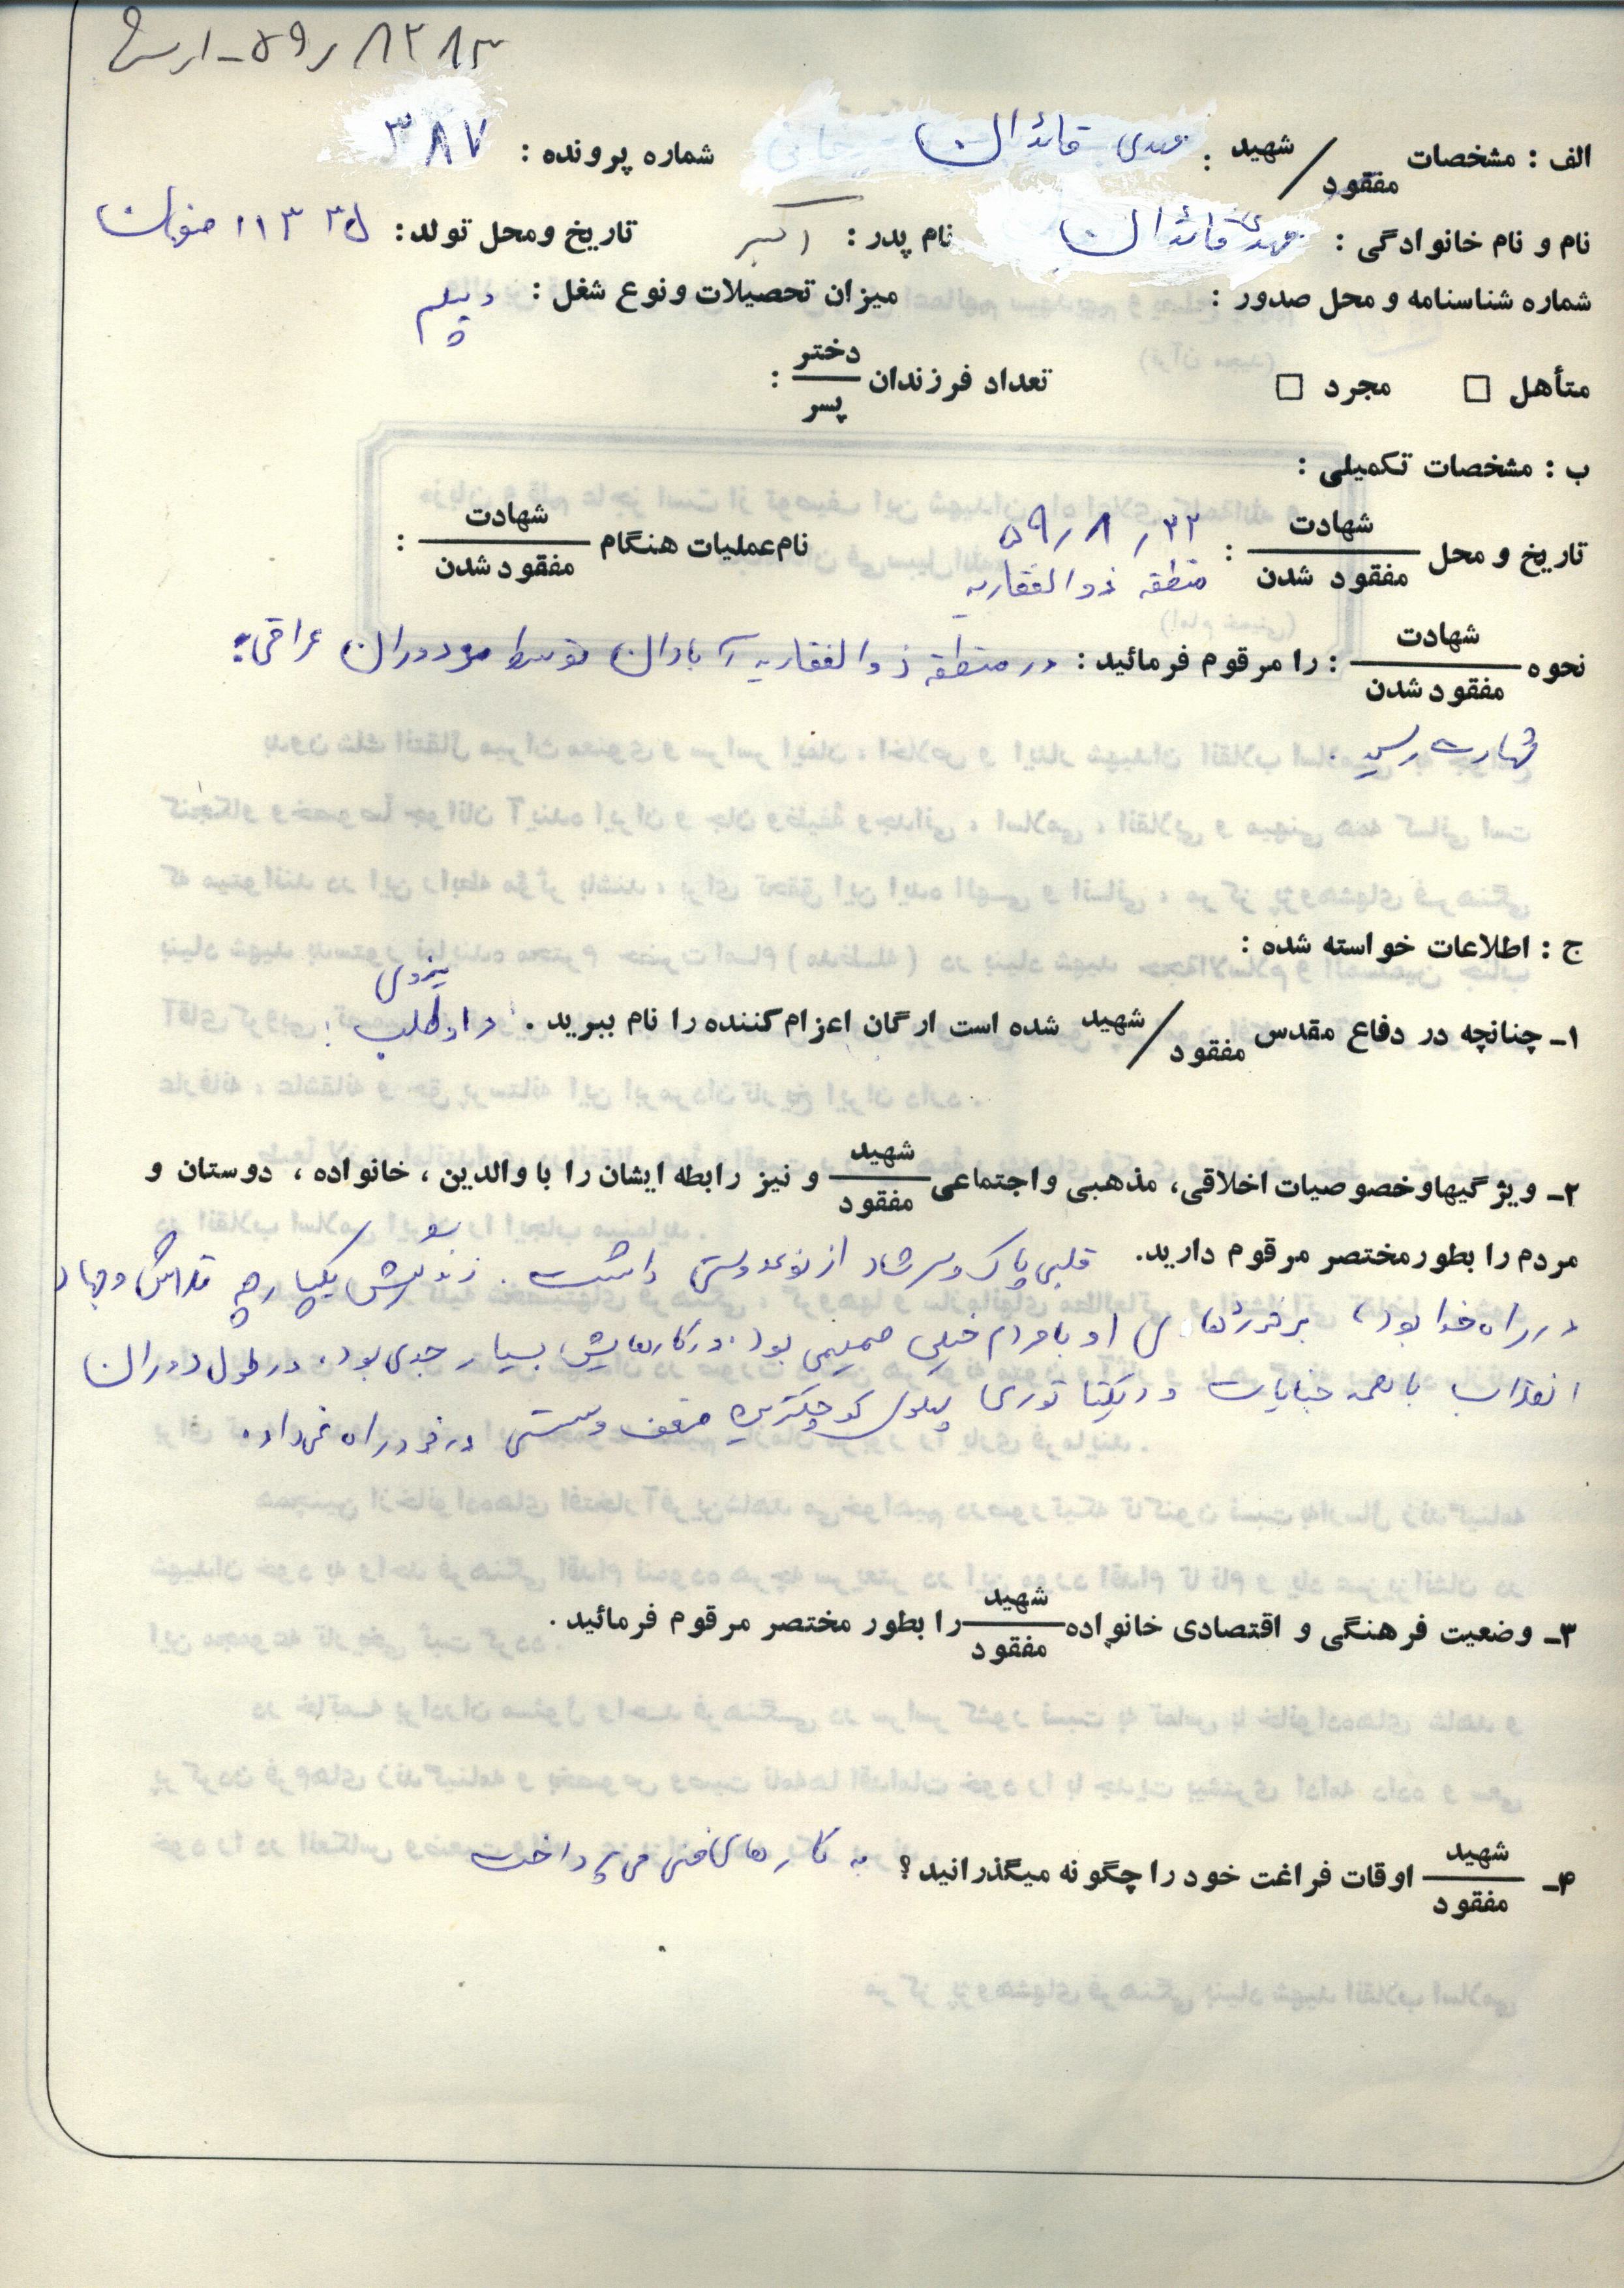 ۵۹ر۸۲۸۳ - ارس
الف : مشخصات شهید / مفقود : مهدی قائدان شماره پرونده : ۳۸۷
نام و نام خانوادگی : مهدی قائدان نام پدر : اکبر تاریخ و محل تولد : ۱۱ ۳ ۳۵
شماره شناسنامه و محل صدور : میزان تحصیلات و نوع شغل : دیپلم
متأهل □ مجرد □ تعداد فرزندان دختر / پسر :
ب : مشخصات تکمیلی :
تاریخ و محل شهادت / مفقود شدن : ۲۲ ر ۸ ر ۵۹ منطقه ذوالفقاریه نام عملیات هنگام شهادت / مفقود شدن :
نحوه شهادت / مفقود شدن : را مرقوم فرمائید : در منطقه ذوالفقاریه آبادان توسط مزدوران عراقی به
شهادت رسید .
ج : اطلاعات خواسته شده :
۱ـ چنانچه در دفاع مقدس شهید / مفقود شده است ارگان اعزام کننده را نام ببرید . داوطلب
۲ـ ویژگیها و خصوصیات اخلاقی، مذهبی و اجتماعی شهید / مفقود و نیز رابطه ایشان را با والدین ، خانواده ، دوستان و
مردم را بطور مختصر مرقوم دارید. قلبی پاک و سرشار از نوعدوستی داشت . زندگیش یکپارچه تلاش و جهاد
در راه خدا بود، او با مردم خیلی صمیمی بود . در کارهایش بسیار جدی بود . در طول دوران
انقلاب با همه جنایات و دیکتاتوری پهلوی کوچکترین ضعف و سستی در خود راه نمی داد .
۳ـ وضعیت فرهنگی و اقتصادی خانواده شهید / مفقود را بطور مختصر مرقوم فرمائید .
۴ـ شهید / مفقود اوقات فراغت خود را چگونه میگذرانید ؟ به کارهای فنی می پرداخت